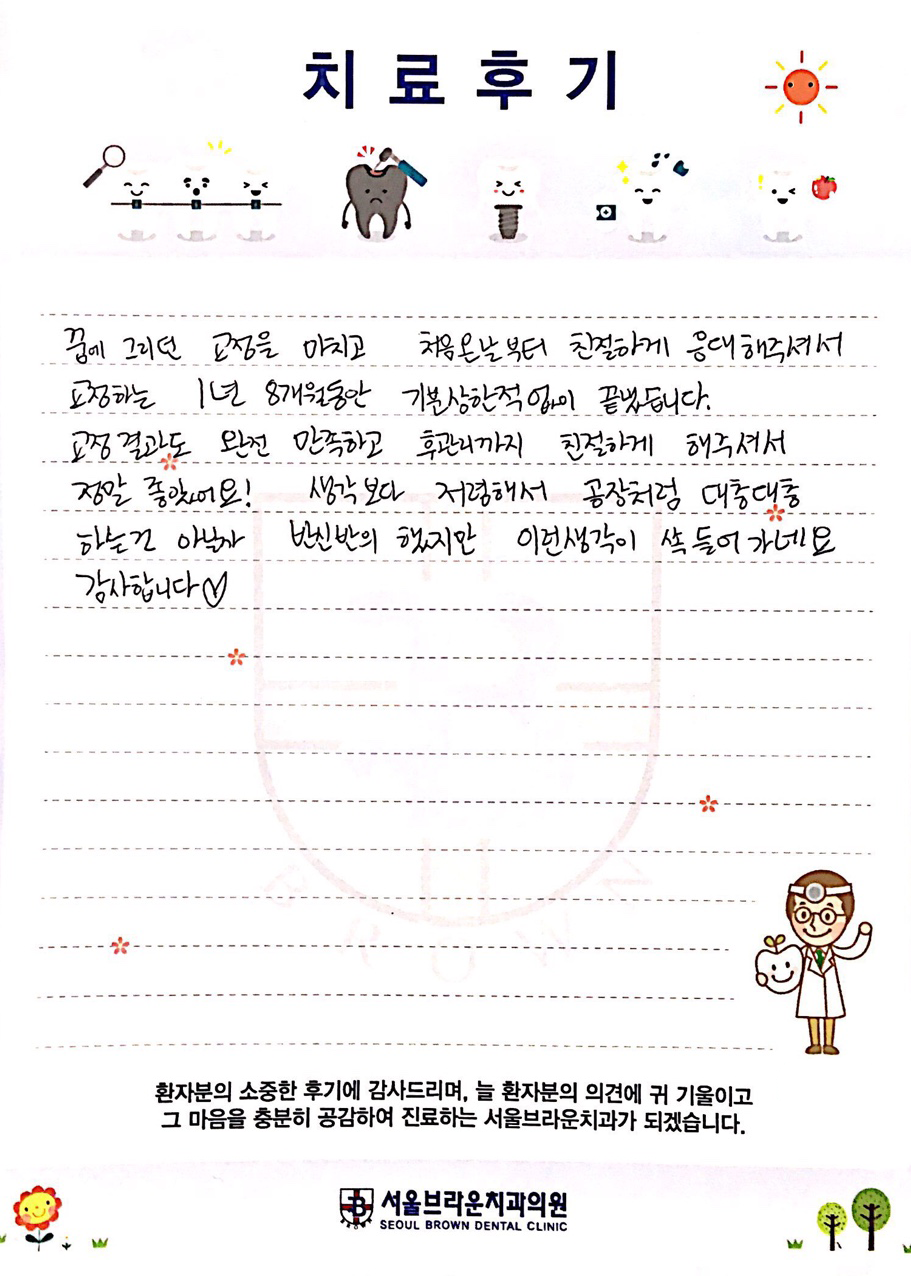 치료후기
꿈에 그리던 교정을 마치고 처음온날부터 친절하게 응대해주셔서
교정하는 1년 8개월동안 기분상한적없이 끝냈습니다.
교정결과도 완전 만족하고 후관리까지 친절하게 해주셔서
정말 좋았어요! 생각보다 저렴해서 공장처럼 대충대충
하는건 아닐까 반신반의 했지만 이런생각이 쏙 들어가네요
감사합니다♡
환자분의 소중한 후기에 감사드리며, 늘 환자분의 의견에 귀 기울이고
그 마음을 충분히 공감하여 진료하는 서울브라운치과가 되겠습니다.
서울브라운치과의원
SEOUL BROWN DENTAL CLINIC